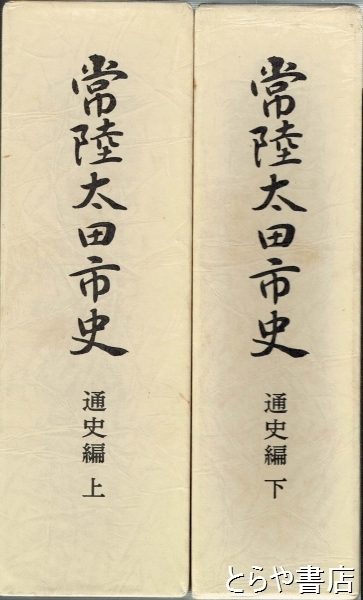 常陸太田市史
通史編 上
常陸太田市史
通史編 下
とらや書店